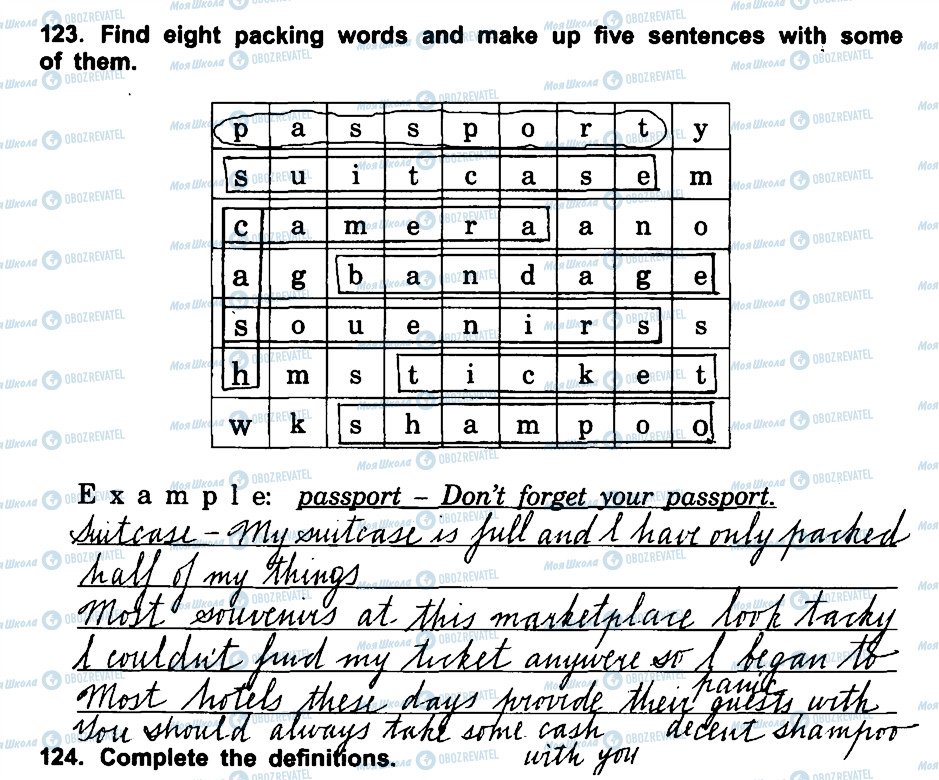 123. Find eight packing words and make up five sentences with some
of them.
p a s s p o r t y
s u i t c a s e m
c a m e r a a n o
a g b a n d a g e
s o u e n i r s s
h m s t i c k e t
w k s h a m p o o
Example: passport – Don't forget your passport.
Suitcase – My suitcase is full and I have only packed
half of my things
Most souvenirs at this marketplace look tacky
I couldn't find my ticket anywere so I began to
panic
Most hotels these days provide their guests with
decent shampoo
You should always take some cash
with you
124. Complete the definitions.
Моя Школа OBOZREVATEL